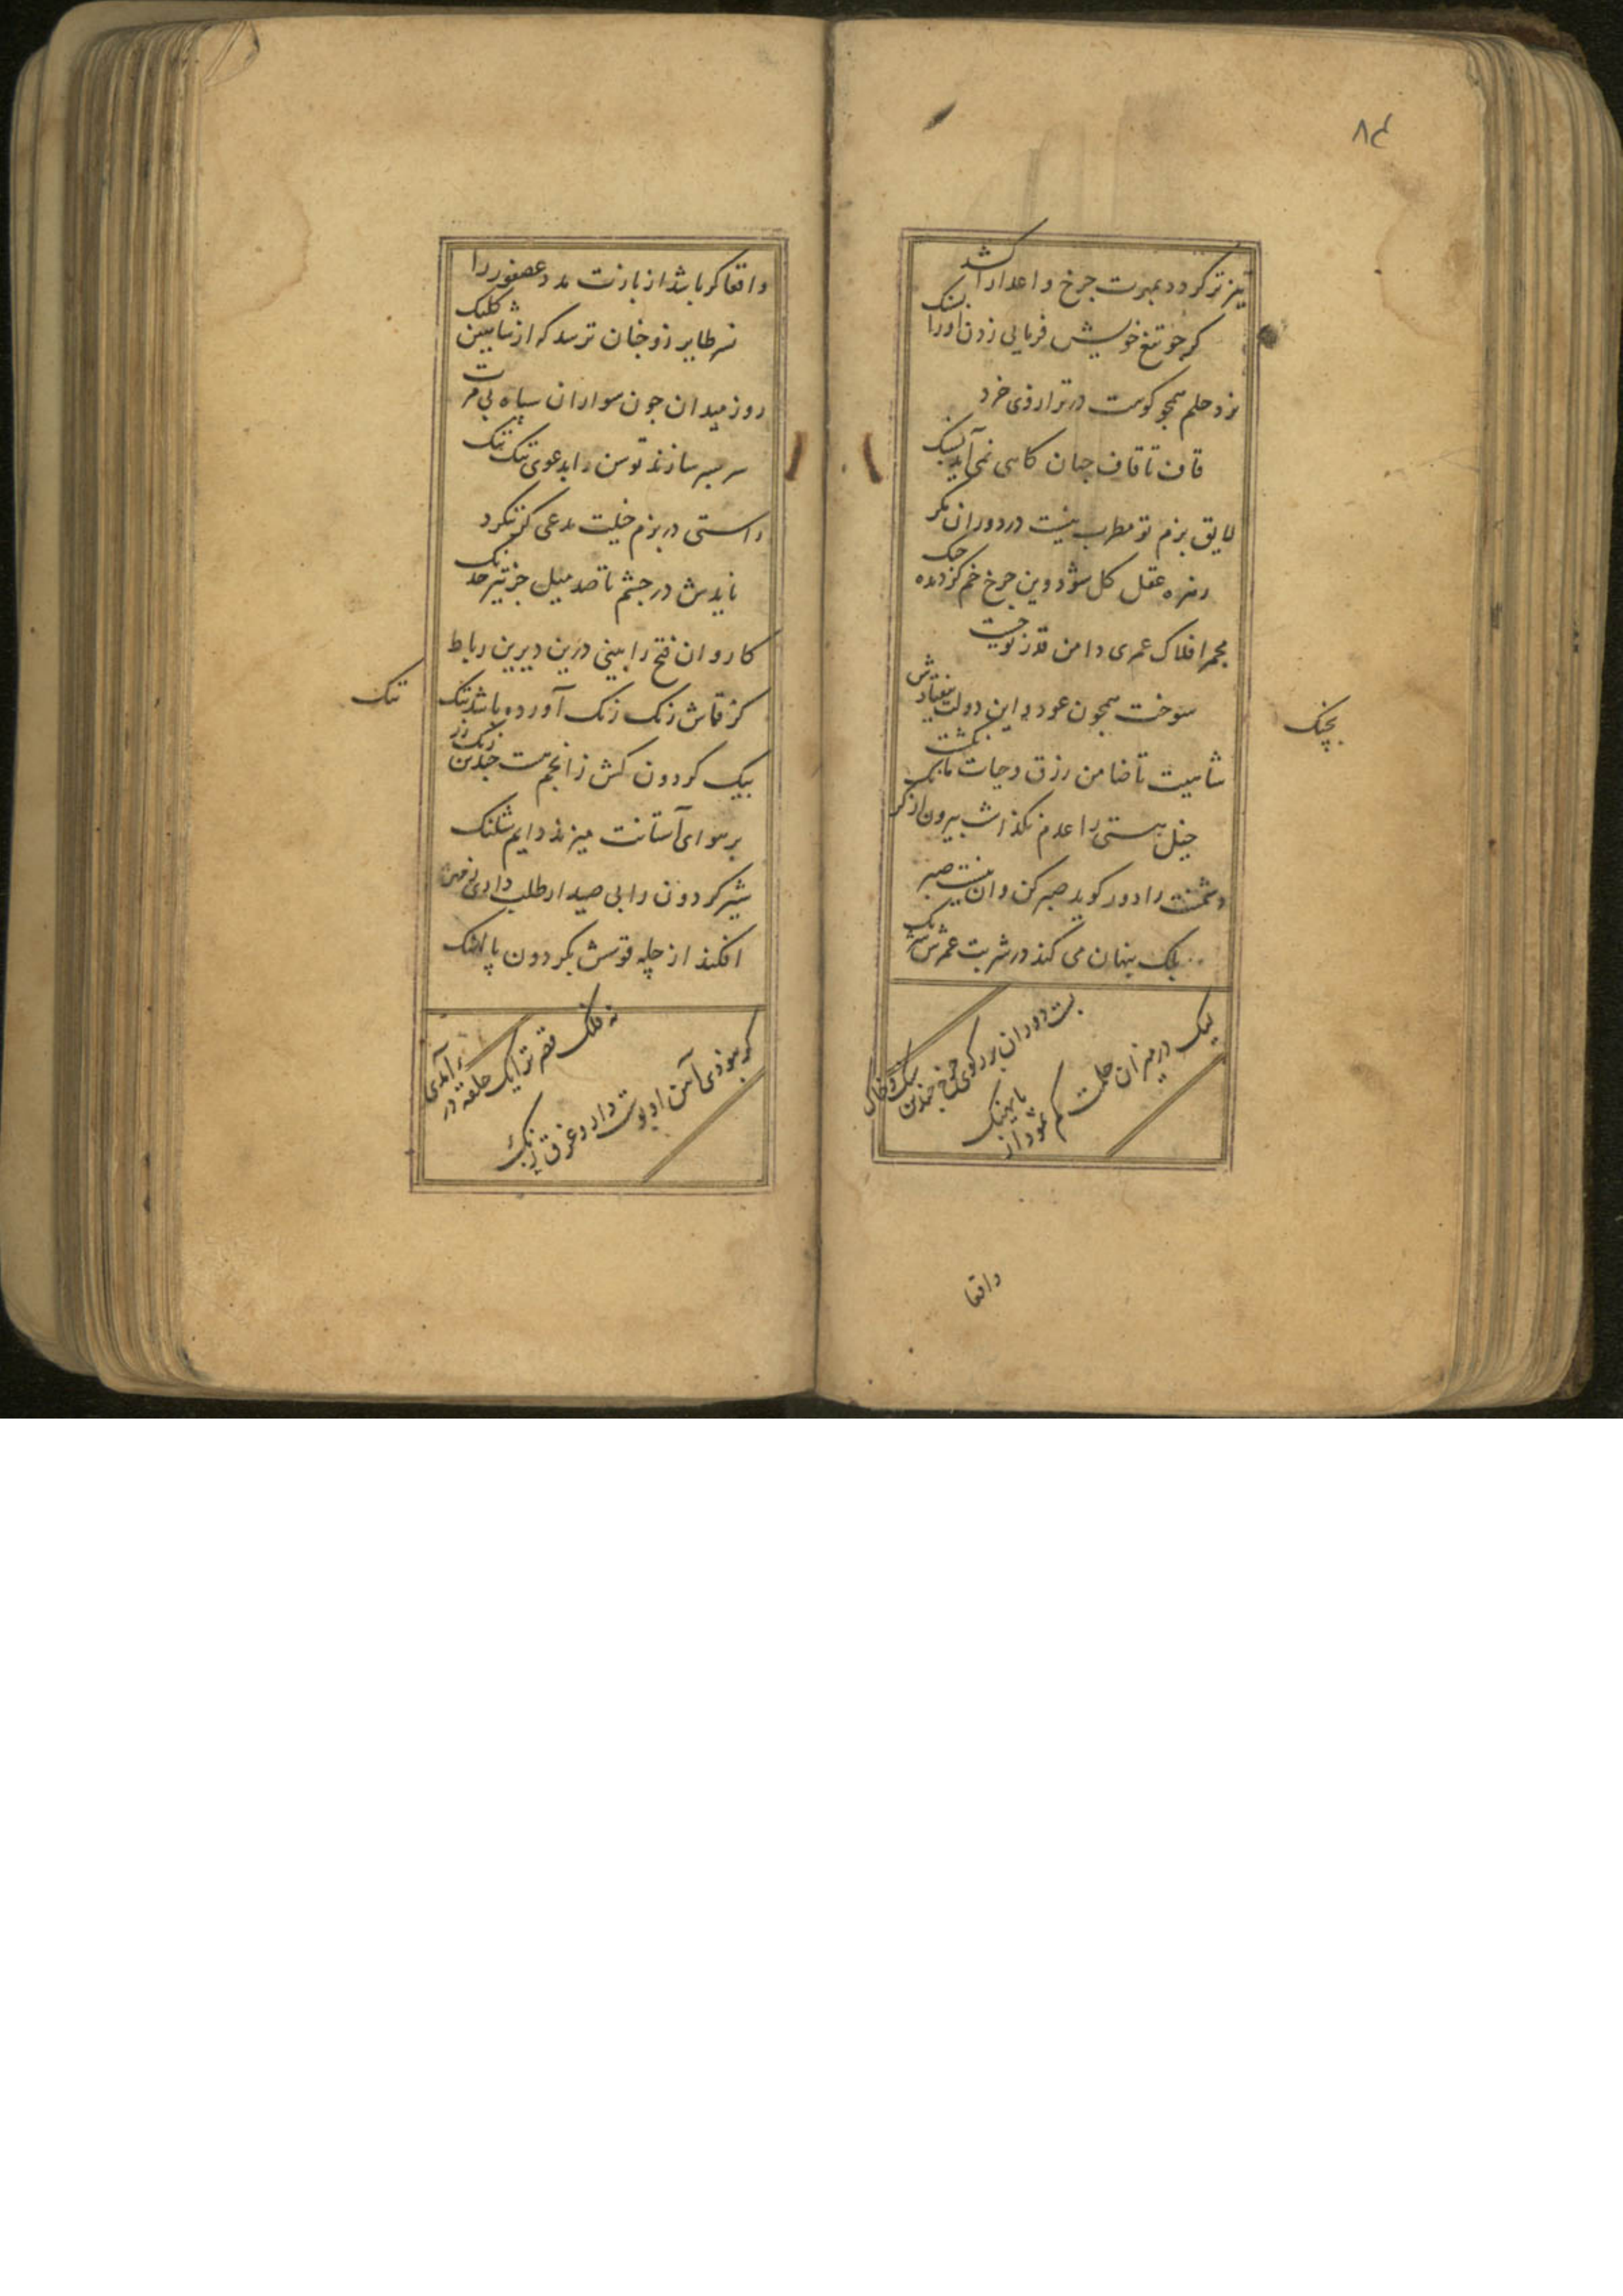 ۸۴
تیزتر کردد بمهرت جرخ و اعدا را کشد
کر جو تیغ خویش فرمایی زدن او را بسنک
نزد حلم همجو کوهت در ترازوی خرد
قاف تا قاف جهان کاهی نمی آید بسنک
لایق بزم تو مطرب نیست در دوران مکر
زهره عقل کل شود وین جرخ خم کردیده جنک
مجمر افلاک عمری دامن قدر تو جست
سوخت همجون عود و این دولت نیفتادش
بچنک
شاهیت تا ضامن رزق و حیات ما بکشت
خیل هستی را عدم نکذاشت بیرون از
دشمنت را دور کوید صبر کن وان نیست صبر
بلک پنهان می کند در شربت عمرش شرنک
لیک در میزان حلمت کم نمود از پاسنک
واقعا
واقعا کر باشد از بازت مدد عصفور را
نسر طایر زو جنان ترسد که از شاهین کلنک
روز میدان جون سواران سپاه بی مرت
سر بسر سازند توسن را بدعوی تنک تنک
راستی در بزم خیلت مدعی کز نکرد
نایدش در جشم تا صد میل جز تیر خدنک
کاروان فتح را بینی درین دیرین رباط
کز قماش زنک زنک آورده باشد تنک
تنک
پیک کردون کش ز انجم هست جندین زنک زر
بر هوای آستانت میزند دایم شلنک
شیر کردون را پی صید ار طلب داری
افکند از چله قوسش بکردون پالهنک
نه فلک قصر ترا یک حلقه در آمدی
کر نبودی آهن او پوست دار و غرق زنک